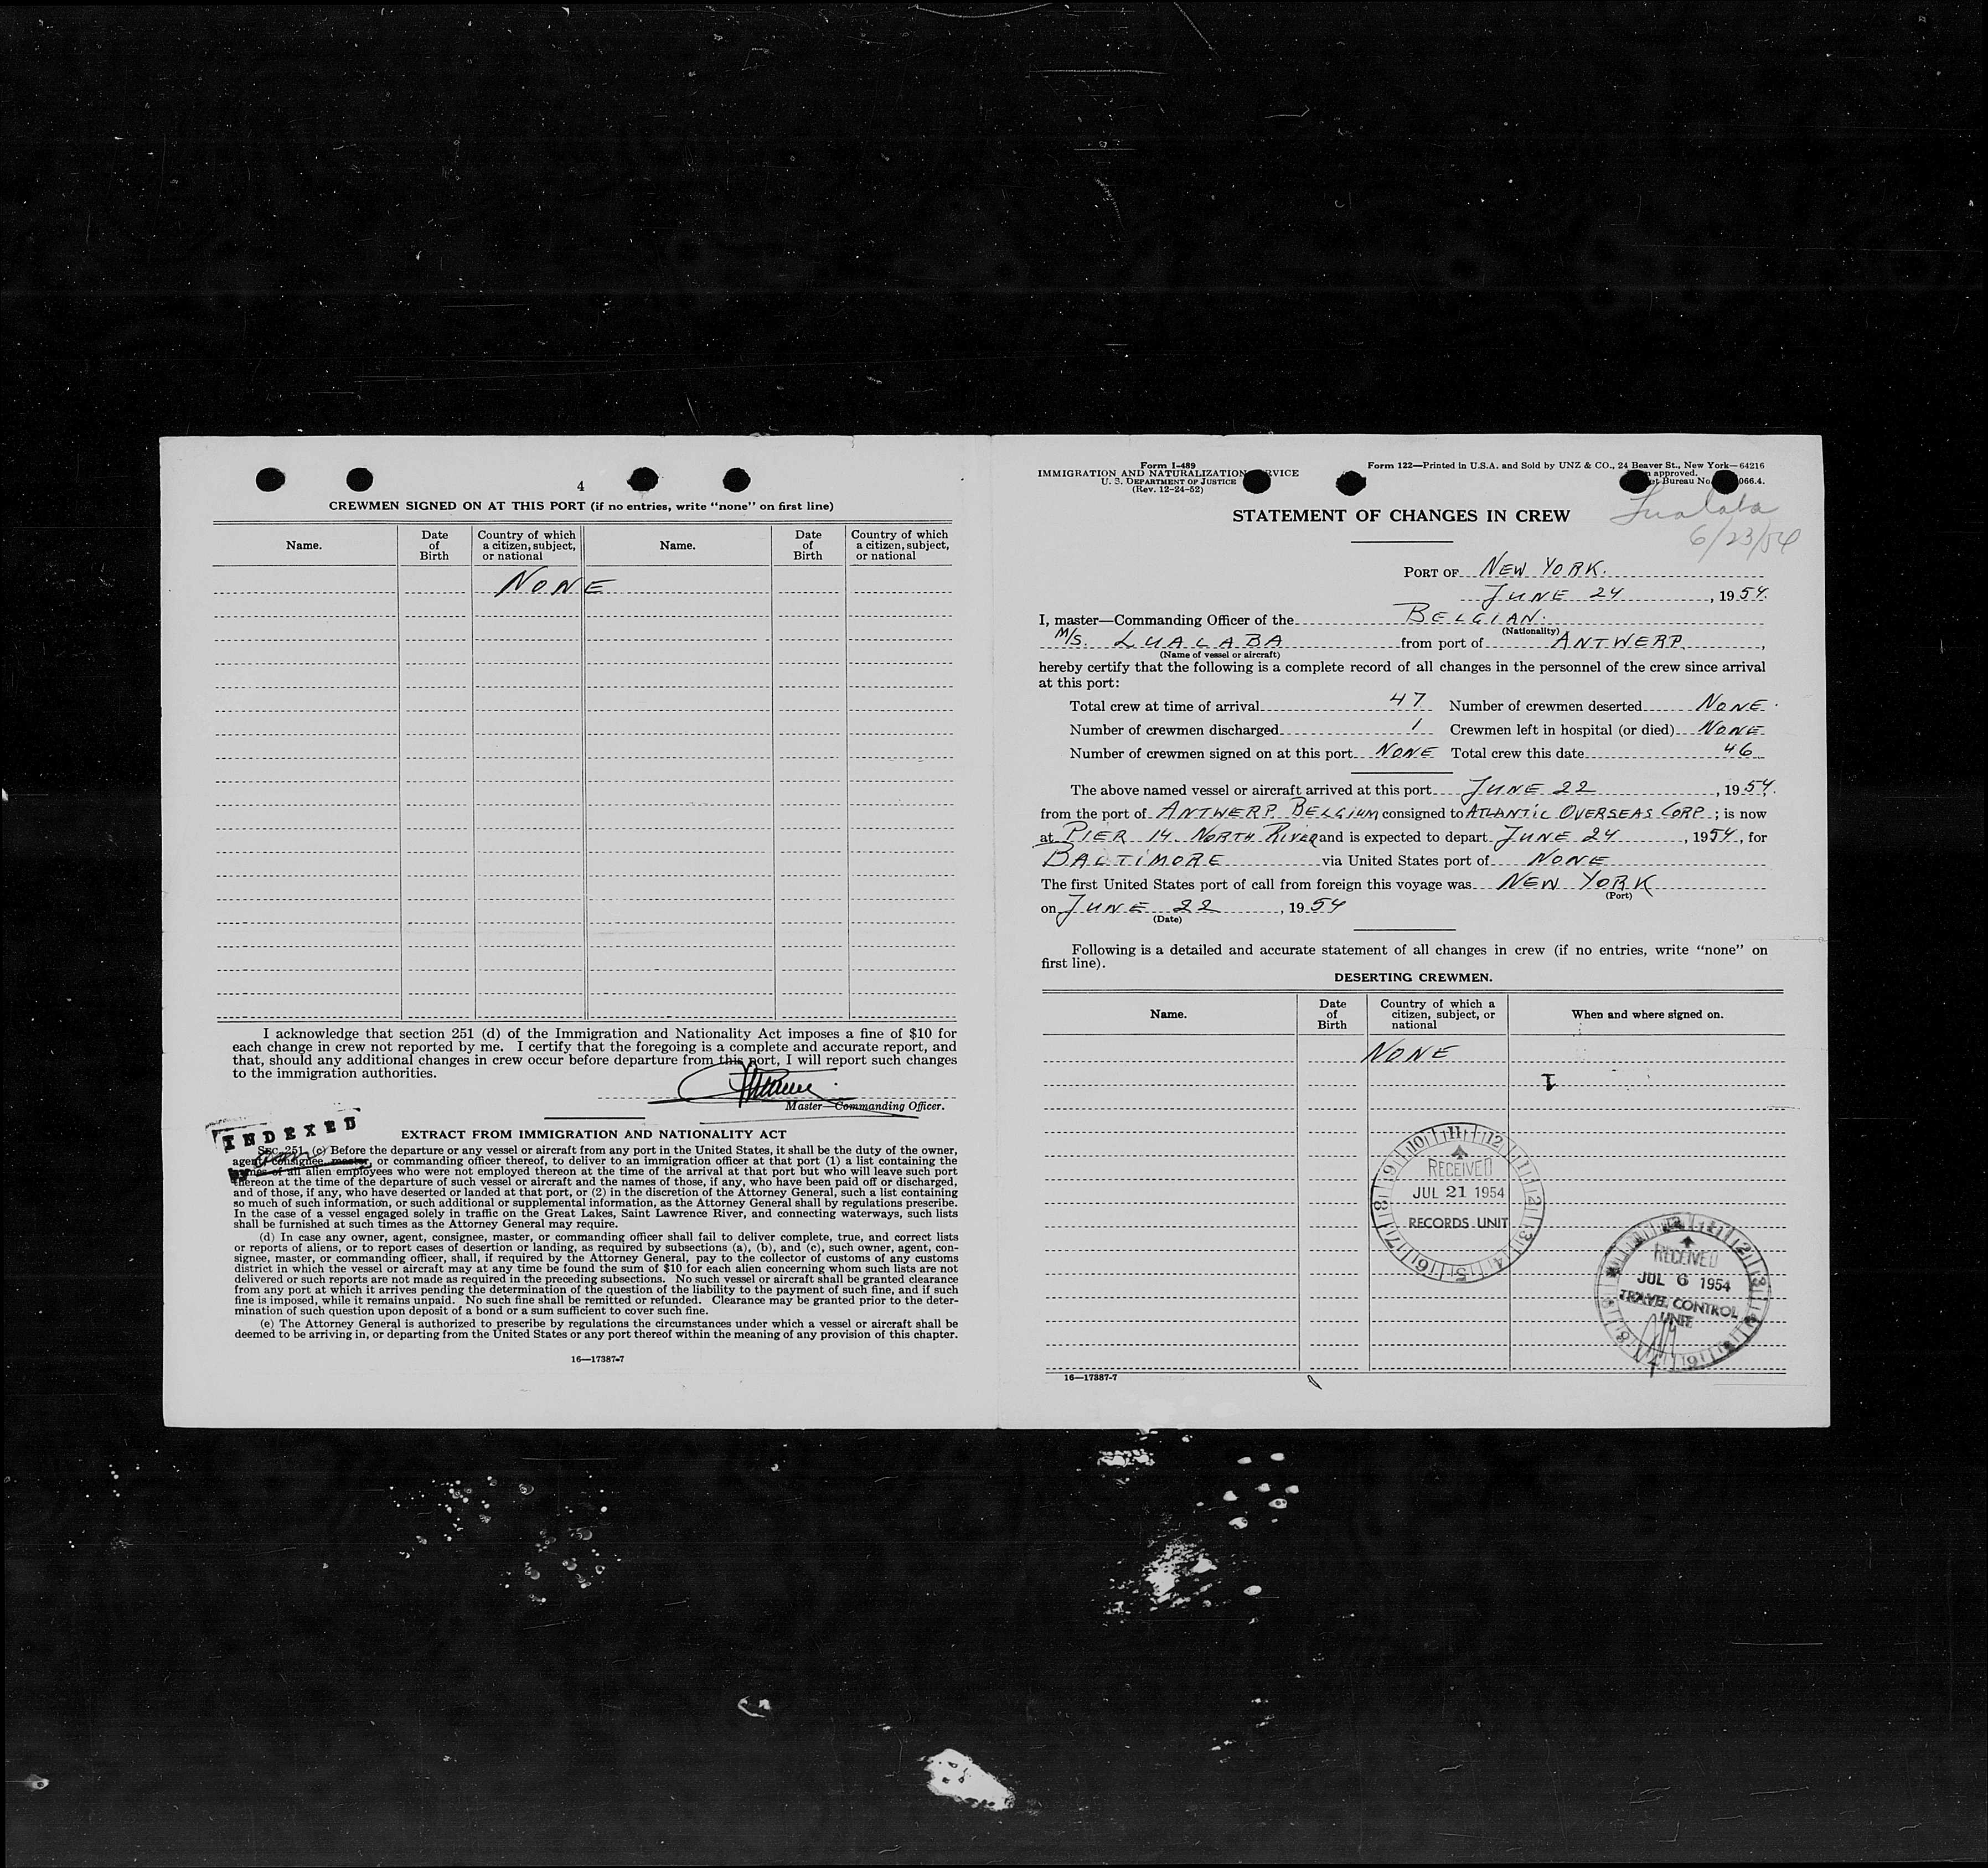 4
CREWMEN SIGNED ON AT THIS PORT (if no entries, write "none" on first line)
Name. Date of Birth Country of which a citizen, subject, or national Name. Date of Birth Country of which a citizen, subject, or national
NONE
I acknowledge that section 251 (d) of the Immigration and Nationality Act imposes a fine of $10 for
each change in crew not reported by me. I certify that the foregoing is a complete and accurate report, and
that, should any additional changes in crew occur before departure from this port, I will report such changes
to the immigration authorities.
Master—Commanding Officer.
INDEXED
EXTRACT FROM IMMIGRATION AND NATIONALITY ACT
SEC. 251. (c) Before the departure or any vessel or aircraft from any port in the United States, it shall be the duty of the owner,
agent, consignee, master, or commanding officer thereof, to deliver to an immigration officer at that port (1) a list containing the
names of all alien employees who were not employed thereon at the time of the arrival at that port but who will leave such port
thereon at the time of the departure of such vessel or aircraft and the names of those, if any, who have been paid off or discharged,
and of those, if any, who have deserted or landed at that port, or (2) in the discretion of the Attorney General, such a list containing
so much of such information, or such additional or supplemental information, as the Attorney General shall by regulations prescribe.
In the case of a vessel engaged solely in traffic on the Great Lakes, Saint Lawrence River, and connecting waterways, such lists
shall be furnished at such times as the Attorney General may require.
(d) In case any owner, agent, consignee, master, or commanding officer shall fail to deliver complete, true, and correct lists
or reports of aliens, or to report cases of desertion or landing, as required by subsections (a), (b), and (c), such owner, agent, con-
signee, master, or commanding officer, shall, if required by the Attorney General, pay to the collector of customs of any customs
district in which the vessel or aircraft may at any time be found the sum of $10 for each alien concerning whom such lists are not
delivered or such reports are not made as required in the preceding subsections. No such vessel or aircraft shall be granted clearance
from any port at which it arrives pending the determination of the question of the liability to the payment of such fine, and if such
fine is imposed, while it remains unpaid. No such fine shall be remitted or refunded. Clearance may be granted prior to the deter-
mination of such question upon deposit of a bond or a sum sufficient to cover such fine.
(e) The Attorney General is authorized to prescribe by regulations the circumstances under which a vessel or aircraft shall be
deemed to be arriving in, or departing from the United States or any port thereof within the meaning of any provision of this chapter.
16—17387-7
Form I-489
IMMIGRATION AND NATURALIZATION SERVICE
U. S. DEPARTMENT OF JUSTICE
(Rev. 12-24-52)
Form 122—Printed in U.S.A. and Sold by UNZ & CO., 24 Beaver St., New York—64216
approved.
Bureau No. 066.4.
Lualaba
6/23/54
STATEMENT OF CHANGES IN CREW
PORT OF NEW YORK.
JUNE 24, 1954.
I, master—Commanding Officer of the BELGIAN.
(Nationality)
M/S. LUALABA from port of ANTWERP,
(Name of vessel or aircraft)
hereby certify that the following is a complete record of all changes in the personnel of the crew since arrival
at this port:
Total crew at time of arrival 47 Number of crewmen deserted NONE.
Number of crewmen discharged 1 Crewmen left in hospital (or died) NONE
Number of crewmen signed on at this port NONE Total crew this date 46
The above named vessel or aircraft arrived at this port JUNE 22, 1954.
from the port of ANTWERP. BELGIUM consigned to ATLANTIC OVERSEAS CORP.; is now
at PIER 14. NORTH RIVER and is expected to depart JUNE 24, 1954, for
BALTIMORE via United States port of NONE
The first United States port of call from foreign this voyage was NEW YORK
(Port)
on JUNE 22, 1954
(Date)
Following is a detailed and accurate statement of all changes in crew (if no entries, write "none" on
first line).
DESERTING CREWMEN.
Name. Date of Birth Country of which a citizen, subject, or national When and where signed on.
NONE
1
RECEIVED
JUL 21 1954
RECORDS UNIT
RECEIVED
JUL 6 1954
TRAVEL CONTROL
UNIT
16—17387-7